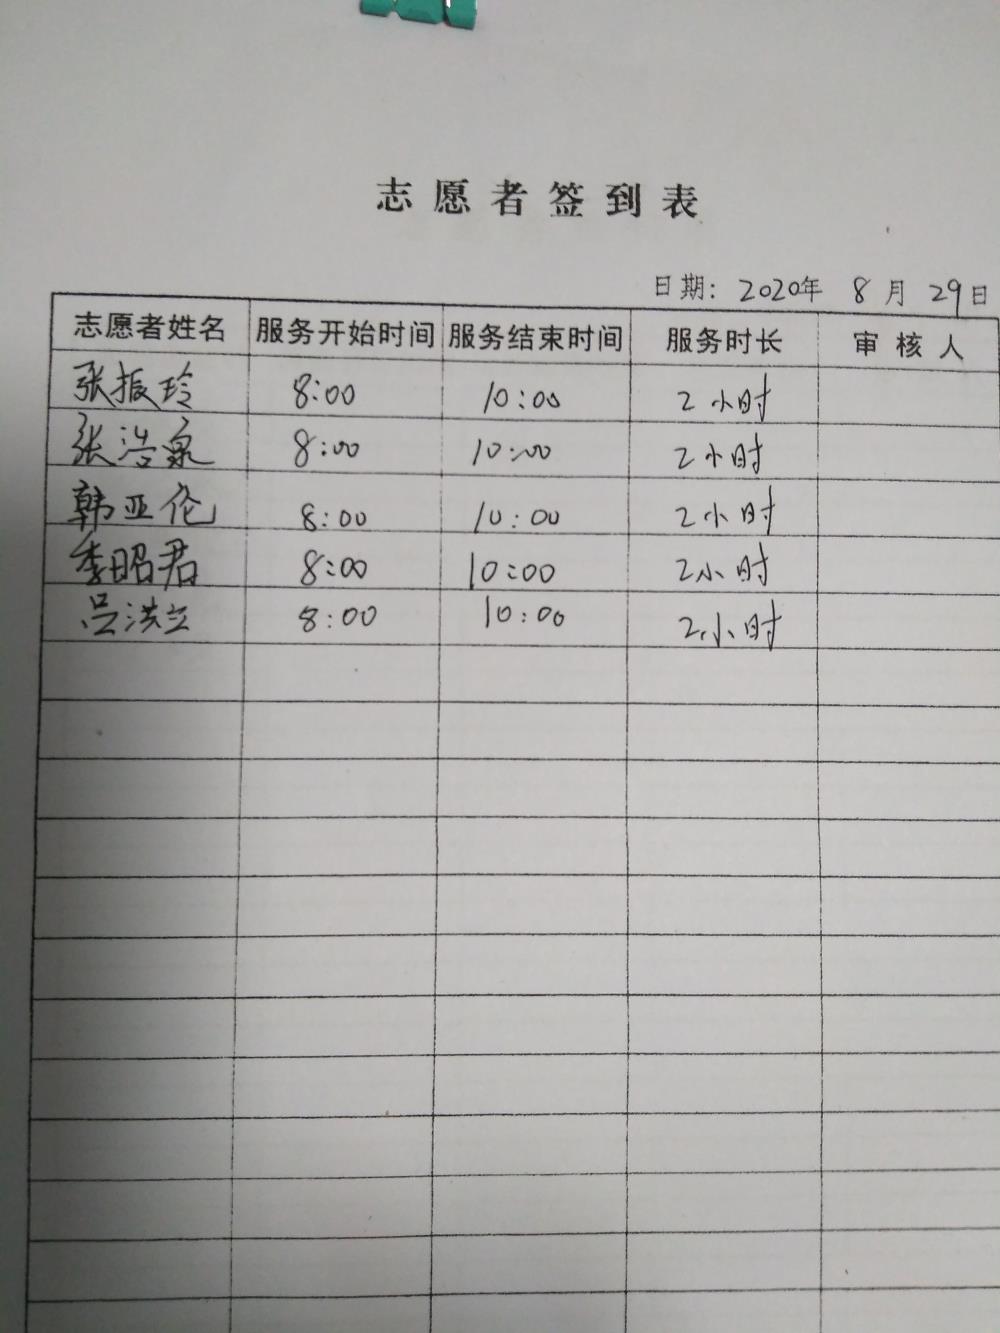 志愿者签到表
日期: 2020年 8月 29日
志愿者姓名 服务开始时间 服务结束时间 服务时长 审核人
张振玲 8:00 10:00 2小时
张浩泉 8:00 10:00 2小时
韩亚伦 8:00 10:00 2小时
李昭君 8:00 10:00 2小时
吕洪立 8:00 10:00 2小时